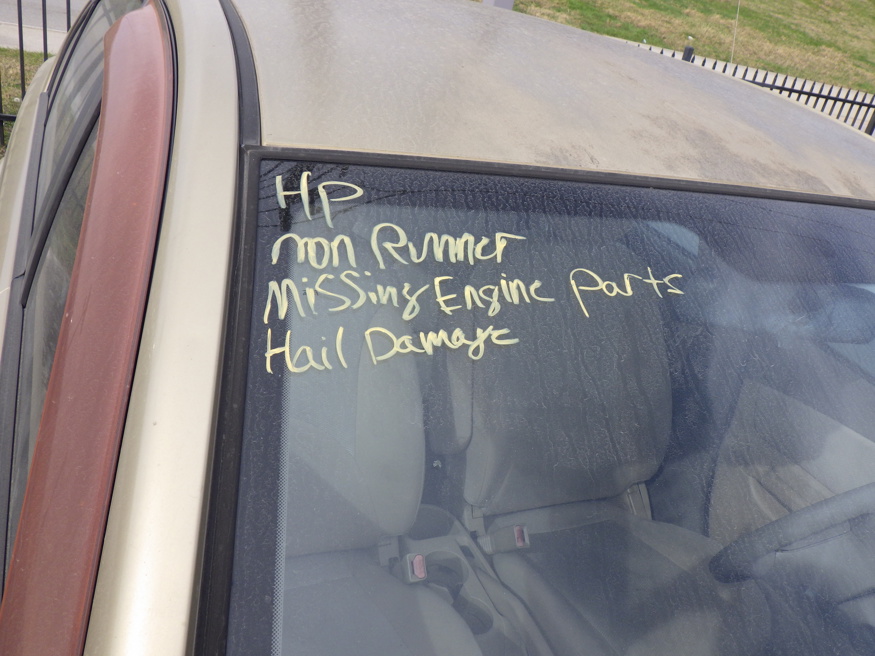 HP
non Runner
Missing Engine parts
Hail Damage